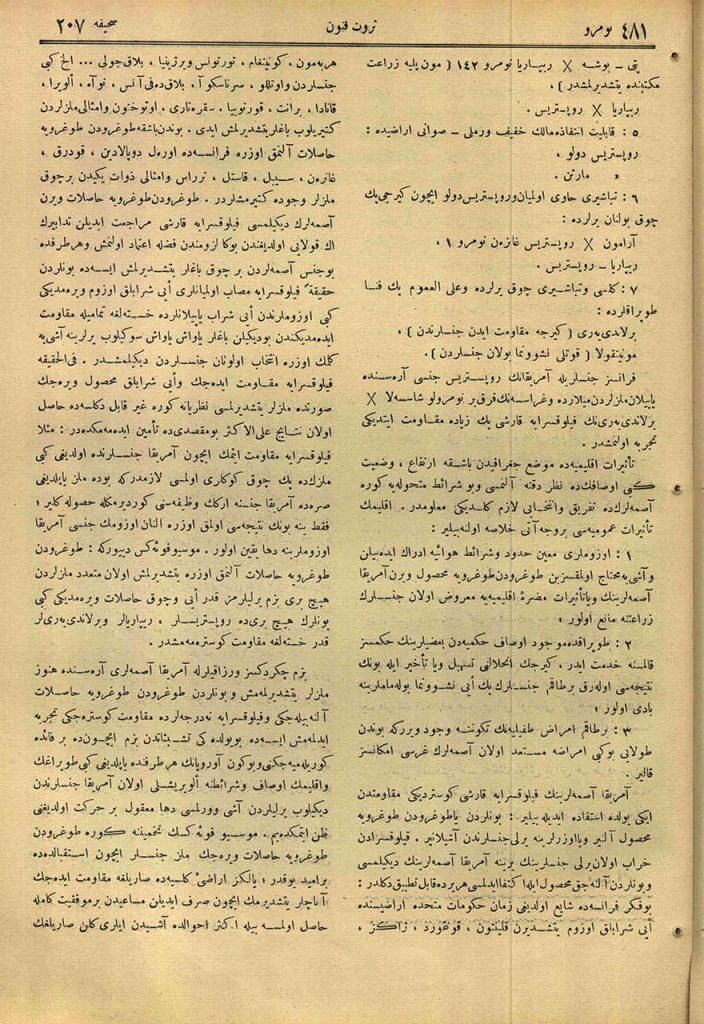 نومرو ٤٨١
ثروت فنون
صحیفه ٢٠٧
یتی ـ بوشه X ریپاریا نومرو ١٤٢ ( مون پلیه زراعت
مکتبنده یتشدیرلمشدر ) ،
ریپاریا X روپستریس .
٥ : قابلیت انتفاذه مالك خفیف ورملی ـ صوانی اراضیده :
روپستریس دولو ،
« مارتن .
٦ : تباشیری حاوی اولمیان وروپستریس دولو ایچون کیرجی پك
چوق بولنان یرلرده :
آرامون X روپستریس غانزن نومرو ١ ،
ریپاریا ـ روپستریس .
٧ : کلسی وتباشیری چوق یرلرده وعلی العموم پك فنا
طوپراقلرده :
برلاندیه‌ری ( کیرجه مقاومت ایدن جنسلرندن ) ،
مونتیقولا ( قوتلی نشوونما بولان جنسلردن ) .
فرانسز جنسلریله آمریقانك روپستریس جنسی آره‌سنده
یاپیلان ملزلردن میلارده وغراسه‌نك قرق بر نومرولو شاسسه‌لا X
برلاندیه‌ری‌نك فیلوقسرایه قارشی پك زیاده مقاومت ایتدیکی
تجربه اولنمشدر .
تأثیرات اقلیمیه‌ده موضع جغرافیدن باشقه ارتفاع ، وضعیت
کبی اوصافك‌ده نظر دقته آلنمسی وبو شرائط متحوله‌یه کوره
آصمه‌لرك‌ده تفریق وانتخابی لازم کله‌جکی معلومدر . اقلیمك
تأثیرات عمومیه‌سی بروجه آتی خلاصه اولنه‌بیلیر :
١ : اوزوملری معین حدود وشرائط هوائیه ادراك ایده‌بیلن
وآشی‌یه محتاج اولمقسزین طوغریدن طوغری‌یه محصول ویرن آمریقا
آصمه‌لرینك ویا تأثیرات مضرهٔ اقلیمیه‌یه معروض اولان جنسلرك
زراعتنه مانع اولور ؛
٢ : طوپراقده موجود اوصاف حکمیه‌دن بعضیلرینك حکمسز
قالمسنه خدمت ایدر ، کیرجك انحلالنی تسهیل ویا تأخیر ایله بونك
نتیجه‌سی اوله‌رق برطاقم جنسلرك پك ایی نشوونما بوله‌ماملرینه
بادی اولور ؛
٣ : برطاقم امراض طفیلیه‌نك تکوننه وجود ویررکه بوندن
طولایی بوکبی امراضه مستعد اولان آصمه‌لرك غرسی امکانسز
قالیر .
آمریقا آصمه‌لرینك فیلوقسرایه قارشی کوستردیکی مقاومتدن
ایکی یولده استفاده ایدیله‌بیلیر : بونلردن یا طوغریدن طوغری‌یه
محصول آلنیر ویا اوزرلرینه یرلی جنسلردن آشیلانیر . فیلوقسرادن
خراب اولان یرلی جنسلرینك یرینه آمریقا آصمه‌لرینك دیکیلمسی
وبونلردن آلنه‌جق محصول ایله اکتفا ایدلمسی هر یرده قابل تطبیق دکلدر :
بوفکر فرانسه‌ده شایع اولدیغی زمان حکومات متحده اراضیسنده
ایی شرابلق اوزوم یتشدیرن قلینتون ، قونقورد ، ژاکز ،
هربه‌مون ، کونینغام ، تورتونس ویرژینیا ، بلاق‌جولی ... الخ کبی
جنسلردن واوتللو ، سرناسکوآ ، بلاق ده‌فی‌آنس ، نوآه ، ألویرا ،
قانادا ، برانت ، قورنوبیا ، سقره‌تاری ، اوتوختون وامثالی ملزلردن
کتیریلوب باغلر یتشدیرلمش ایدی . بوندن باشقه طوغریدن طوغری‌یه
حاصلات آلنمق اوزره فرانسه‌ده اوره‌ل دوپالادین ، قودرق ،
غانزن ، سیبل ، قاستل ، ترراس وامثالی ذوات یکیدن برچوق
ملزلر وجوده کتیرمشلردر . طوغریدن طوغری‌یه حاصلات ویرن
آصمه‌لرك دیکیلمسی فیلوقسرایه قارشی مراجعت ایدیلن تدابیرك
اك قولایی اولدیغندن بوکا لزومندن فضله اعتماد اولنمش وهر طرفده
بوجنس آصمه‌لردن بر چوق باغلر یتشدیرلمش ایسه‌ده بونلردن
حقیقةً فیلوقسرایه مصاب اولمیانلری ایی شرابلق اوزوم ویره‌مدیکی
کبی اوزوملرندن ایی شراب یاپیلانلرده خسته‌لغه تمامیله مقاومت
ایده‌مدیکندن بودیکیلن باغلر یاواش یاواش سوکیلوب یرلرینه آشی‌یه
کلمك اوزره انتخاب اولونان جنسلردن دیکیلمشدر . فی‌الحقیقه
فیلوقسرایه مقاومت ایده‌جك وایی شرابلق محصول ویره‌جك
صورتده ملزلر یتشدیرلمسی نظریاته کوره غیر قابل دکلسه‌ده حاصل
اولان نتایج علی‌الاکثر بومقصدی‌ده تأمین ایده‌مه‌مکده‌در : مثلا
فیلوقسرایه مقاومت ایتمك ایچون آمریقا جنسلرنده اولدیغی کبی
ملزك‌ده پك چوق کوکلری اولمسی لازمدرکه بوده ملز یاپلدیغی
صره‌ده آمریقا جنسنه ارکك وظیفه‌سنی کوردیرمکله حصوله کلیر ؛
فقط ینه بونك نتیجه‌سی اولمق اوزره آلنان اوزومك جنسی آمریقا
اوزوملرینه دها یقین اولور . موسیو فوئه‌کس دییورکه : طوغریدن
طوغری‌یه حاصلات آلنمق اوزره یتشدیرلمش اولان متعدد ملزلردن
هیچ بری بزم یرلیلرمز قدر ایی وچوق حاصلات ویره‌مدیکی کبی
بونلرك هیچ بری‌ده روپستریسلر ، ریپاریالر وبرلاندیه‌ری‌لر
قدر خسته‌لغه مقاومت کوستره‌مه‌مشدر .
بزم چکردکسز ورزاقیلرله آمریقا آصمه‌لری آره‌سنده هنوز
ملزلر یتشدیرلمه‌مش وبونلردن طوغریدن طوغری‌یه حاصلات
آلنه‌بیله‌جکی وفیلوقسرایه نه‌درجه‌لرده مقاومت کوستره‌جکی تجربه
ایدلمه‌مش ایسه‌ده بویولده کی تشبثاتدن بزم ایچون‌ده بر فائده
کوریله‌میه‌جکنی وبوکون آوروپانك هرطرفنده یاپلدیغی کبی طوپراغك
واقلیمك اوصاف وشرائطنه ألویریشلی اولان آمریقا جنسلرندن
دیکیلوب یرلیلردن آشی وورلمسی دها معقول بر حرکت اولدیغنی
ظن ایتمکده‌یم . موسیو فوئه‌کسك تخمیننه کوره طوغریدن
طوغری‌یه حاصلات ویره‌جك ملز جنسلر ایچون استقبالده‌ده
برامید یوقدر ؛ یالکز اراضئ کلسیه‌ده صاریلغه مقاومت ایده‌جك
آناجلر یتشدیرمك ایچون صرف ایدیلن مساعیدن برموفقیت کامله
حاصل اولمسه بیله اکثر احوالده آشیدن ایلری کلن صاریلغك